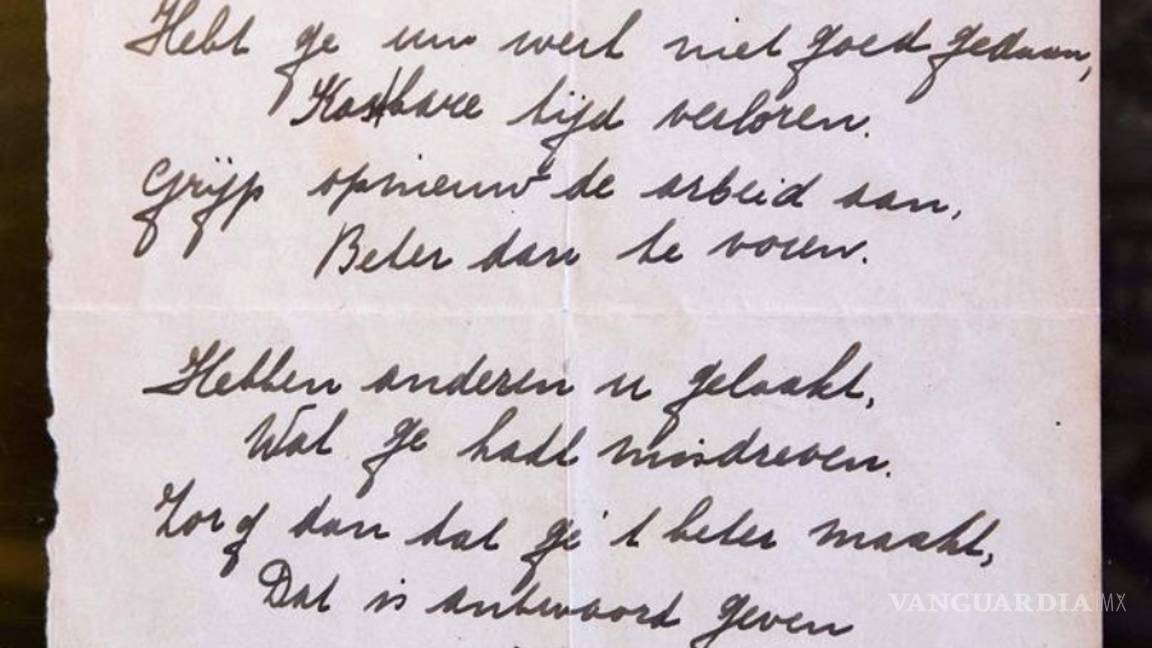 Hebt ge uw werk niet goed gedaan,
Kostbare tijd verloren.
Grijp opnieuw de arbeid aan,
Beter dan te voren.
Hebben anderen u gelaakt,
Wat ge hadt misdreven.
Zorg dan dat ge 't beter maakt,
Dat is antwoord geven
VANGUARDIA MX